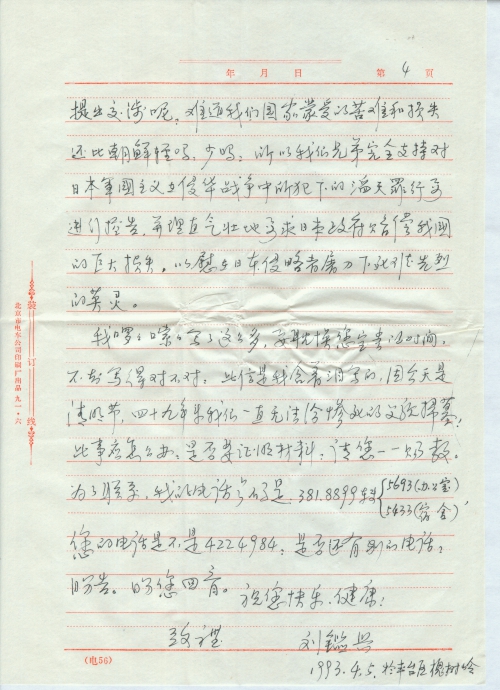 年 月 日 第 4 頁
提出交涉呢，难道我们国家蒙受的苦难和损失
还比朝鲜轻吗，少吗：所以我们兄弟完全支持对
日本军國主义在侵华战争中所犯下的滔天罪行予
进行控告，并理直气壮地要求日本政府赔偿我國
的巨大损失，以慰在日本侵略者屠刀下死难先烈
的英灵。
我啰啰嗦嗦写了这么多，耽误您宝贵的时间，
不知写得对不对。此信是我含着泪写的，因今天是
清明节，四十九年来我们一直无法给惨死的父亲扫墓！
此事应怎么办，是否要证明材料，请您一一賜教。
为了联系，我的电话号码是 381.8899转 5693(办公室)
5433(宿舍)，
您的电话是不是4224984；是否还有别的电话；
盼告。盼您回音。
祝您快乐、健康！
致礼 刘鑑兴
1993.4.5. 於丰台区槐树岭
(电56)
装订线
北京市电车公司印刷厂出品 九一·六